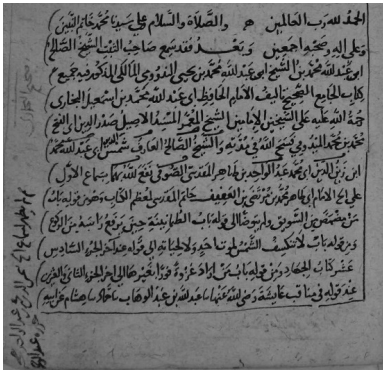 الحمد لله رب العالمين والصلاة والسلام على سيدنا محمد خاتم النبيين
وعلى اله وصحبه اجمعين وبعد فقد سمع صاحب الثبت الشيخ الصالح
ابى عبد الله محمد بن الشيخ ابى عبد الله محمد بن يحيى المالكى المذكور فيه جميع
كتاب الجامع الصحيح تاليف الامام الحافظ ابى عبد الله محمد بن اسمعيل البخارى
رحمة الله عليه على الشيخين الامامين الشيخ المعمر المسند الاصيل صدر الدين ابى الفتح
محمد بن محمد الميدومى والشيخ الصالح العارف شمس الدين ابى عبد الله محمد
ابن زين الدين ابى محمد عبد الواحد بن طاهر المقدسى الصوفى نفع الله بهما بسماع الاول
على الامام ابى الطاهر محمد بن مرتضى بن العفيف حاتم المقدسى لمعظم الكتاب وهو من قوله باب
من مضمض من السويق ولم يتوضأ الى قوله باب الطمأنينة حين يرفع راسه من الركوع
ومن قوله باب لا تنكسف الشمس لموت احد ولا لحياته الى قوله عند اخر الجزء السادس
عشر كتاب الجهاد ومن قوله باب من اراد غزوة فورى بغيرها الى اخر الجزء الثانى والعشرين
عند قوله فى مناقب عايشة رضى الله عنها عبد الله بن عبد الوهاب حماد هشام عن ابيه